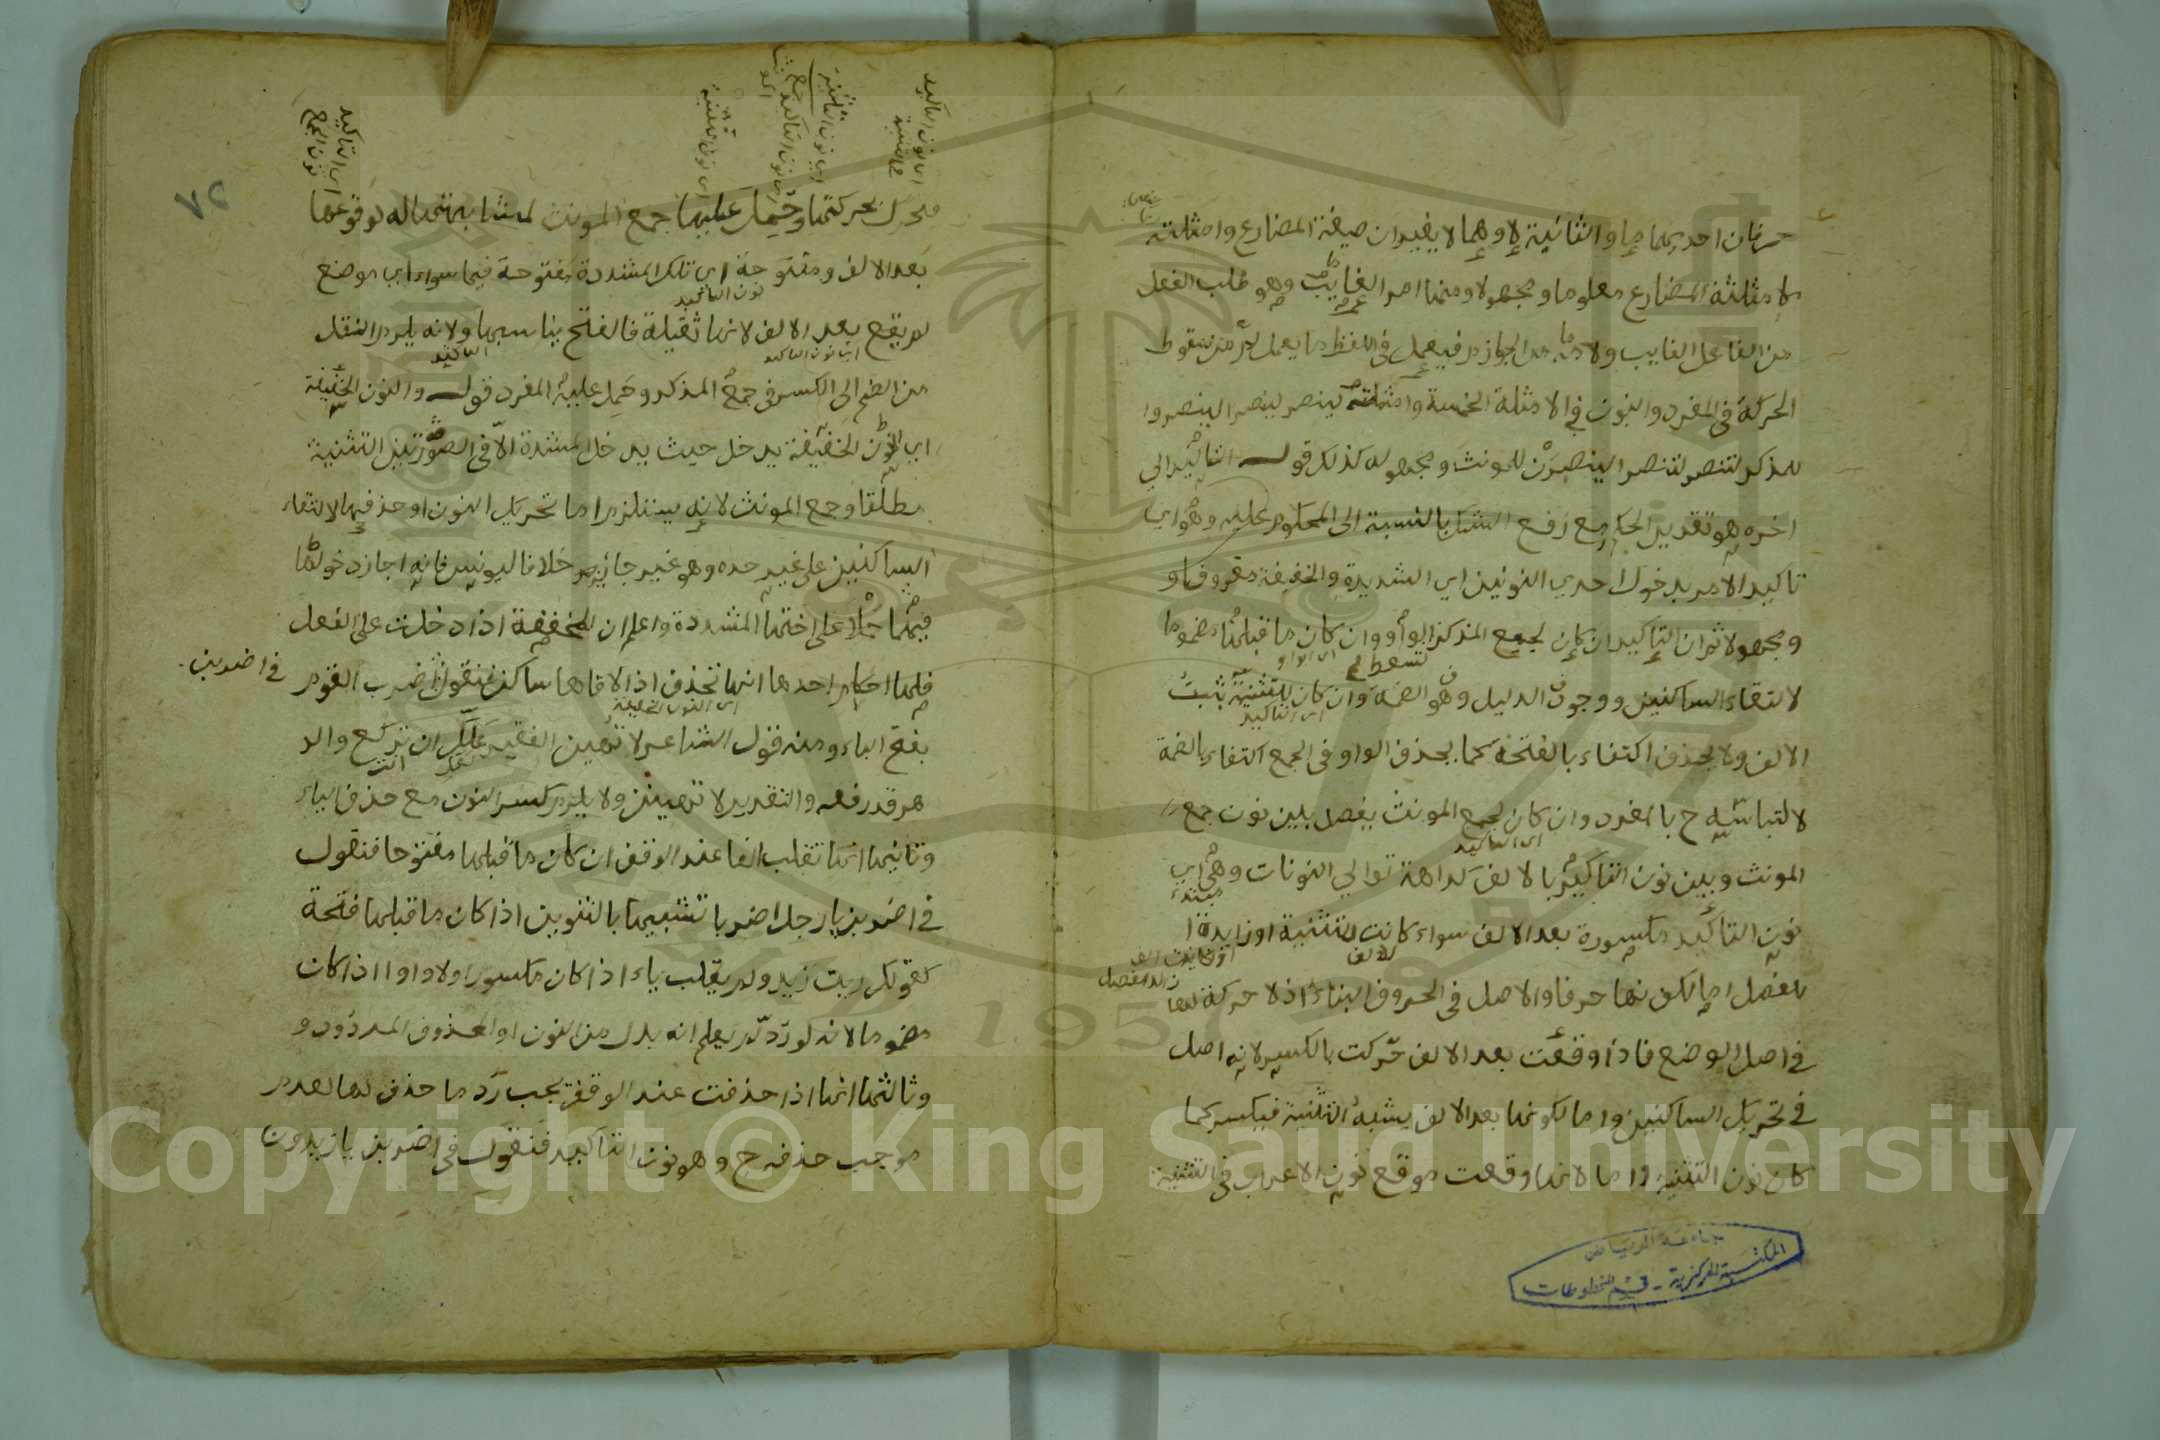 حرفان احديهما ما والثانية لا وهما لا يغيران صيغة المضارع وامثلته
كامثلة المضارع معلوما ومجهولا ومنها امر الغايب وهو طلب الفعل
من الفاعل الغايب ولامه من الجوازم فيعمل في اللفظ ما يعمل لم من سقوط
الحركة في المفرد والنون في الامثلة الخمسة وامثلته لينصر لينصرا لينصروا
للمذكر لتنصر لتنصرا لينصرن للمونث ومجهوله كذلك قوله التاكيد الي
اخره هو تقدير الحكم مع رفع الشك بالنسبة الى المحكوم عليه وهو اي
تاكيد الامر بدخول احدي النونين اي الشديدة والخفيفة معروفا و
ومجهولا ثم ان التاكيد ان كان لجمع المذكر الواو وان كان ما قبلها مضموما
تسقط
اي الواو
لالتقاء الساكنين ووجود الدليل وهو الضمة وان كان للتثنية ثبت
اي التاكيد
الالف ولا يحذف اكتفاء بالفتحة كما يحذف الواو في الجمع اكتفاء بالضمة
لالتباسه ح بالمفرد وان كان لجمع المونث يفصل بين نون جمع
اي التاكيد
المونث وبين نون التاكيد بالالف كراهة توالي النونات وهي اي
مبتدء
نون التاكيد مكسورة بعد الالف سواء كانت للتثنية او زايدة
للالف
للفصل اما لكونها حرفا والاصل في الحروف البناء اذ لا حركة لها
في اصل الوضع فاذا وقعت بعد الالف حركت بالكسر لانه اصل
في تحريك الساكنين واما لكونها بعد الالف يشبه التثنية فيكسر كما
كان نون التثنية واما لانها وقعت موقع نون الاعراب في التثنية
جامعة الرياض
المكتبة المركزية - قسم المخطوطات
اي نون التاكيد
في التثنية
اي نون التثنية
اي نون التاكيد
جمع
اي نون التثنية
اي التاكيد
نون الجمع
٧٢
فتحرك بحركتها وحمل عليها جمع المونث لمشابهتها له لوقوعها
بعد الالف ومفتوحة اي تلك المشددة مفتوحة فيما سواه اي موضع
نون التاكيد
لم يقع بعد الالف لانها ثقيلة فالفتح يناسبها ولانه يلزم النقل
اي نون التاكيد
التاكيد
من الضم الى الكسر في جمع المذكر وحمل عليه المفرد قوله والنون الخفيفة
اي النون الخفيفة يدخل حيث يدخل المشددة الا في الصورتين التثنية
مطلقا وجمع المونث لانه يستلزم اما تحريك النون او حذفها لالتقاء
الساكنين على غير حده وهو غير جايز خلافا ليونس فانه اجاز دخولها
فيهما حملا على اختها المشددة واعلم ان للمخففة اذا دخلت على الفعل
فلها احكام احدها انها تحذف اذا لاقاها ساكن فتقول اضرب القوم
في اضربن
اي النون الخفيفة
بفتح الباء ومنه قول الشاعر لا تهين الفقير علك ان تركع والد
لعلك
انت
هر قد رفعه والتقدير لا تهينن ولا يلزم كسر النون مع حذف الياء
وثانيها انها تقلب الفا عند الوقف ان كان ما قبلها مفتوحا فتقول
في اضربن يا رجل اضربا تشبيها بالتنوين اذا كان ما قبلها فتحة
كقولك رايت زيد ولم يقلب ياء اذا كان مكسورا ولا واوا اذا كان
مضموما لانه لو رد لم يعلم انه بدل من النون او المحذوف المردود و
وثالثها انها اذا حذفت عند الوقف يجب رد ما حذف لها لعدم
موجب حذفه ح وهو نون التاكيد فتقول في اضربن يا زيدون
Copyright © King Saud University
1957